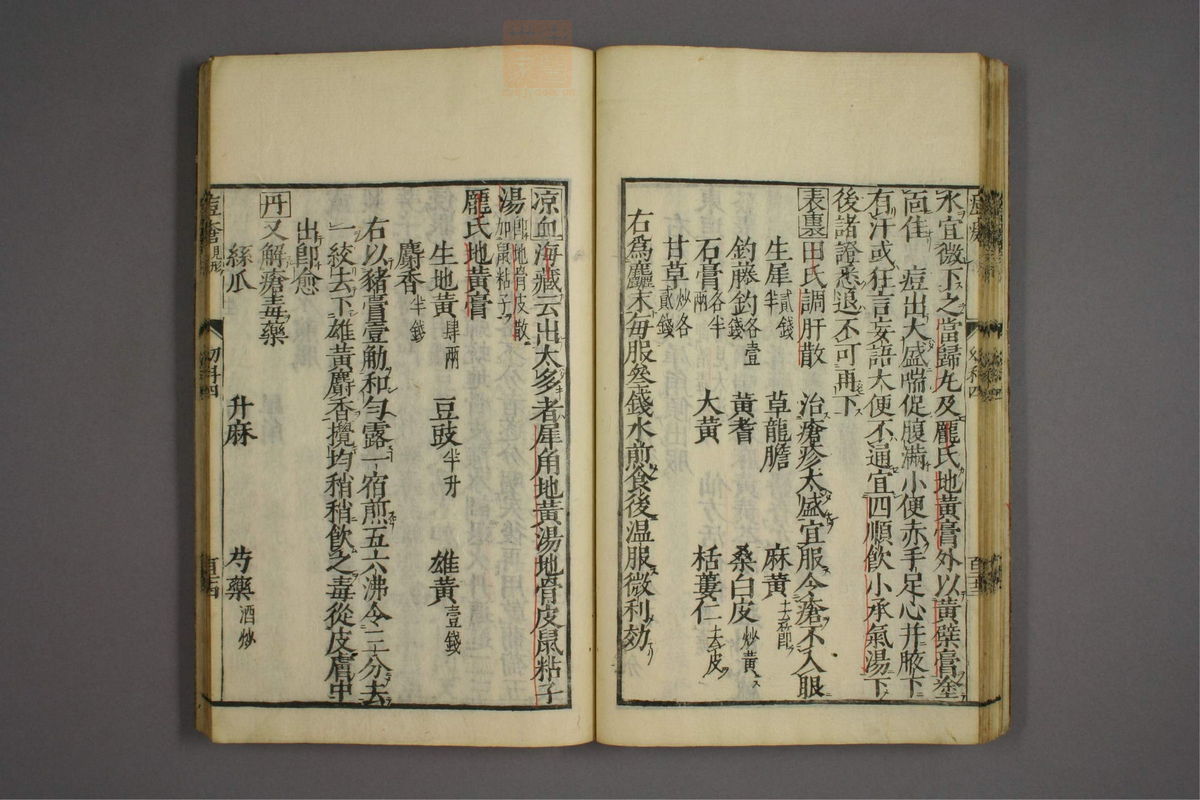 水宜微下之當歸丸及龐氏地黃膏外以黃蘗膏塗
面佳　痘出大盛喘促腹滿小便赤手足心并腋下
有汗或狂言妄語大便不通宜四順飲小承氣湯下
後諸證悉退不可再下
表裏田氏調肝散　治瘡疹太盛宜服令瘡不入眼
生犀半貳錢　草龍膽　麻黃去節
鈎藤鈎各壹錢　黃耆　桑白皮炒黃
石膏各半兩　大黃　栝蔞仁去皮
甘草炒各貳錢
右為麤末每服叁錢水煎食後温服微利効
凉血海藏云出太多者犀角地黃湯地骨皮鼠粘子
湯即地骨皮散加鼠粘子
龐氏地黃膏
生地黃肆兩　豆豉半升　雄黃壹錢
麝香半錢
右以豬膏壹觔和勻露一宿煎五六沸令三分去
一絞去下雄黃麝香攪均稍稍飲之毒從皮膚中
出卽愈
丹又解瘡毒藥
絲瓜　升麻　芍藥酒炒
痘瘡見形　幼科四　百十四